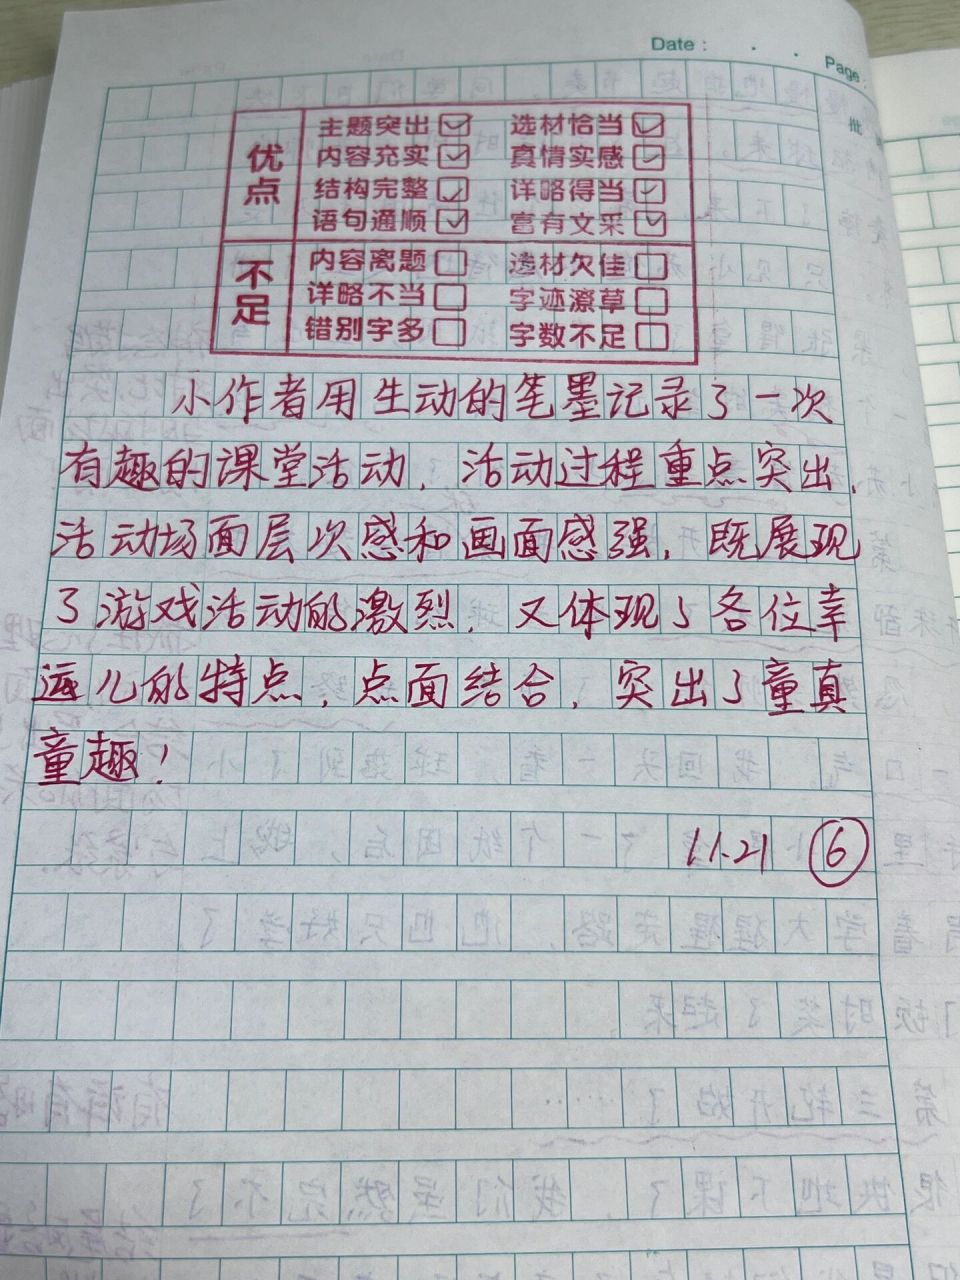 Date : . .
Page:
批
优点
主题突出 ☑ 选材恰当 ☑
内容充实 ☑ 真情实感 ☑
结构完整 ☑ 详略得当 ☑
语句通顺 ☑ 富有文采 ☑
不足
内容离题 □ 选材欠佳 □
详略不当 □ 字迹潦草 □
错别字多 □ 字数不足 □
小作者用生动的笔墨记录了一次
有趣的课堂活动，活动过程重点突出，
活动场面层次感和画面感强，既展现
了游戏活动的激烈，又体现了各位幸
运儿的特点，点面结合，突出了童真
童趣！
11.21 ⑥